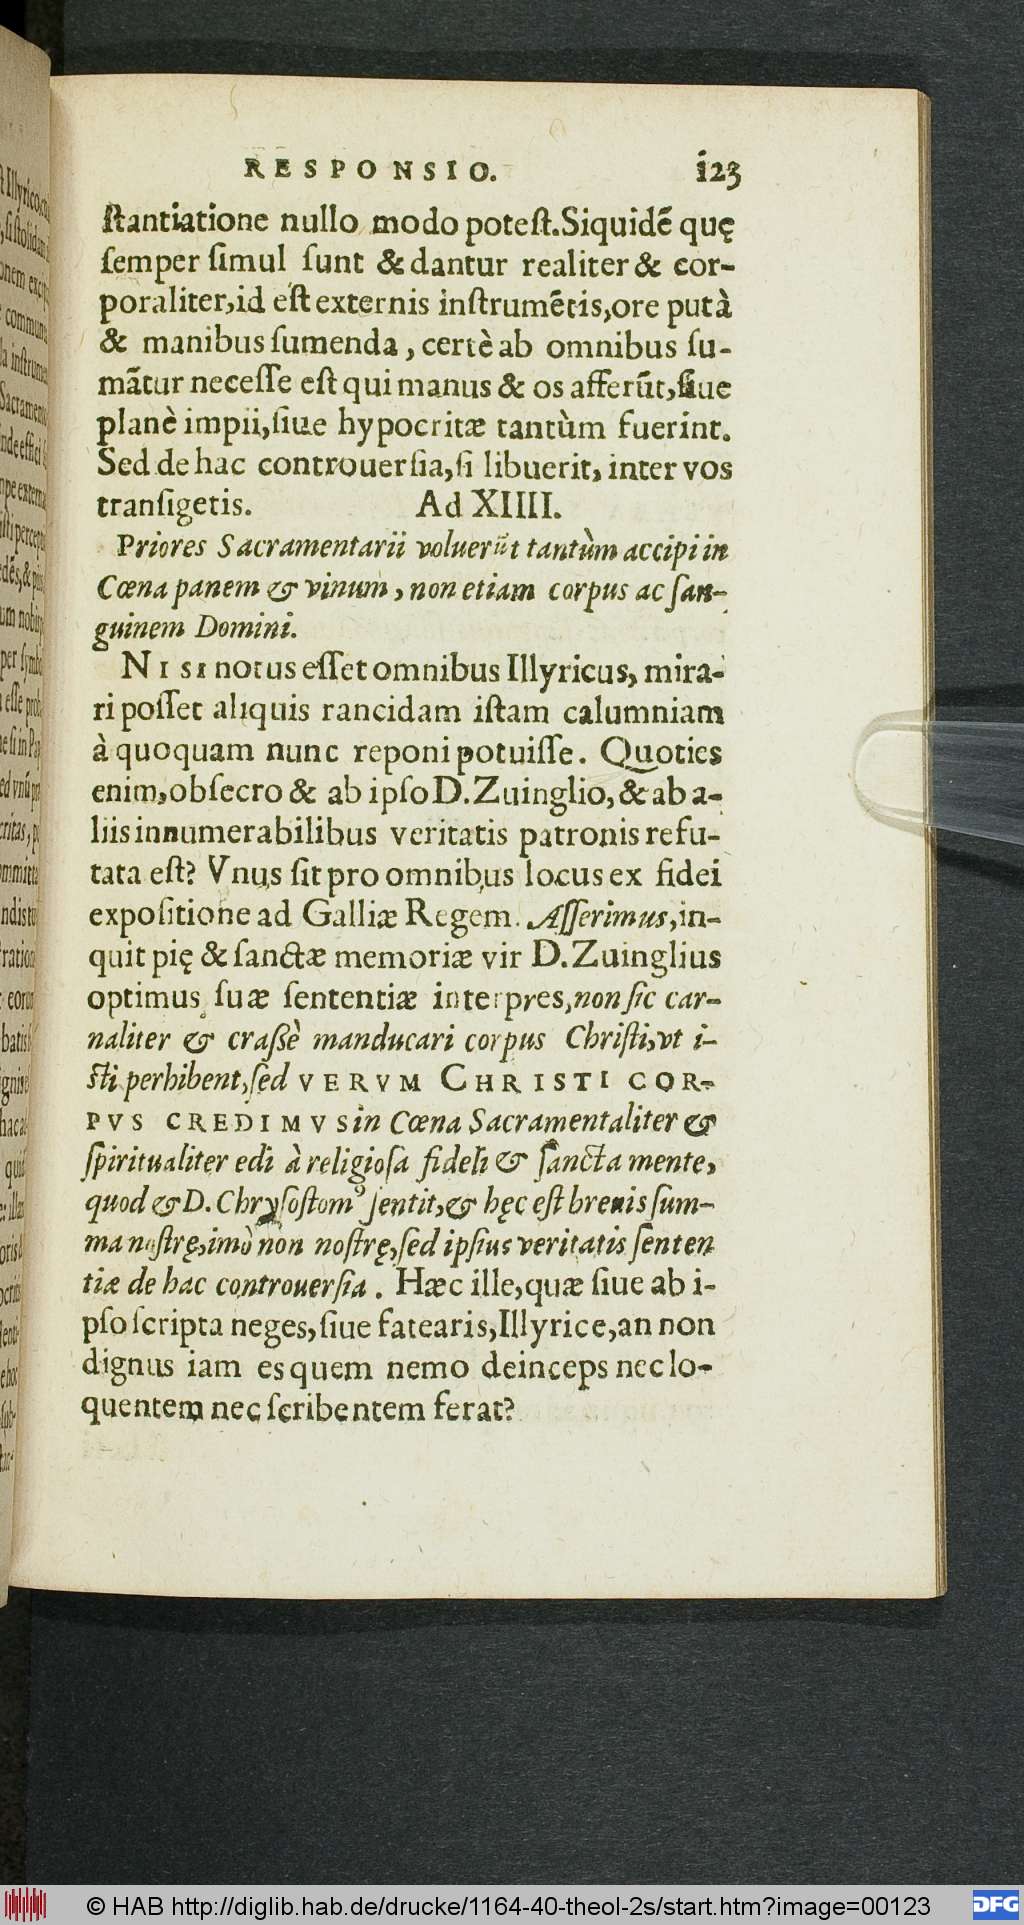 RESPONSIO. 123
ſtantiatione nullo modo poteſt. Siquidē quę
ſemper ſimul ſunt & dantur realiter & cor-
poraliter, id eſt externis inſtrumētis, ore putà
& manibus ſumenda, certè ab omnibus ſu-
mātur neceſſe eſt qui manus & os afferūt, ſiue
planè impii, ſiue hypocritæ tantùm fuerint.
Sed de hac controuerſia, ſi libuerit, inter vos
tranſigetis. Ad XIIII.
Priores Sacramentarii voluerūt tantùm accipi in
Cœna panem & vinum, non etiam corpus ac ſan-
guinem Domini.
NISI notus eſſet omnibus Illyricus, mira-
ri poſſet aliquis rancidam iſtam calumniam
à quoquam nunc reponi potuiſſe. Quoties
enim, obſecro & ab ipſo D. Zuinglio, & ab a-
liis innumerabilibus veritatis patronis refu-
tata eſt? Vnus ſit pro omnibus locus ex fidei
expoſitione ad Galliæ Regem. Aſſerimus, in-
quit pię & ſanctæ memoriæ vir D. Zuinglius
optimus ſuæ ſententiæ interpres, non ſic car-
naliter & craſsè manducari corpus Chriſti, vt i-
ſti perhibent, ſed VERVM CHRISTI COR-
PVS CREDIMVS in Cœna Sacramentaliter &
ſpiritualiter edi à religioſa fideli & ſancta mente,
quod & D. Chryſoſtomꝰ ſentit, & hęc eſt breuis ſum-
ma noſtrę, imò non noſtrę, ſed ipſius veritatis ſenten
tiæ de hac controuerſia. Hæc ille, quæ ſiue ab i-
pſo ſcripta neges, ſiue fatearis, Illyrice, an non
dignus iam es quem nemo deinceps nec lo-
quentem nec ſcribentem ferat?
© HAB http://diglib.hab.de/drucke/1164-40-theol-2s/start.htm?image=00123
DFG